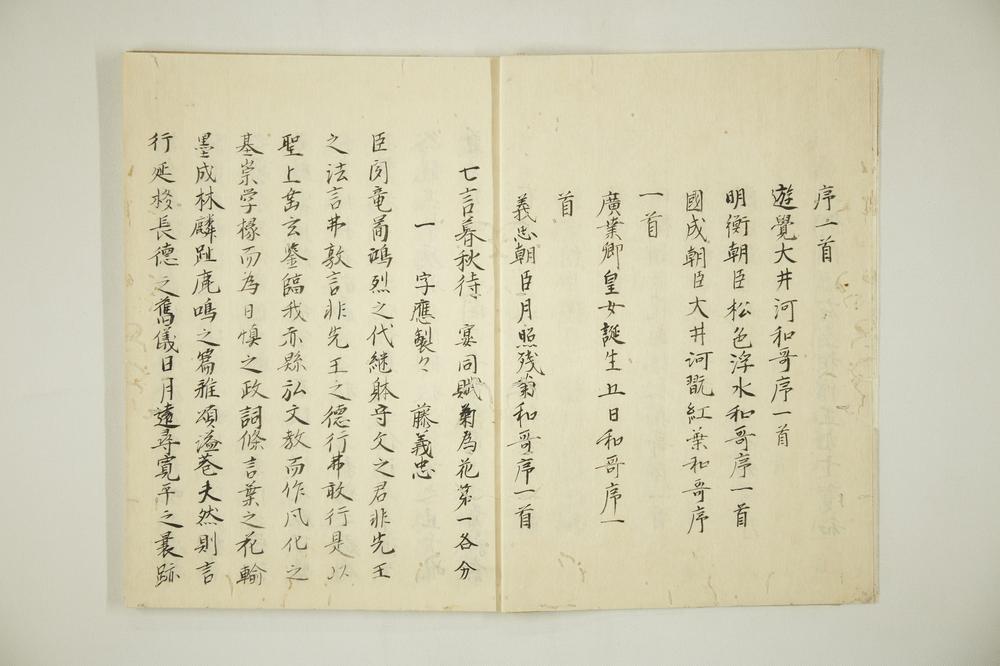 序一首
遊覺大井河和哥序一首
明衡朝臣松色浮水和哥序一首
國成朝臣大井河翫紅葉和哥序
一首
廣業卿皇女誕生五日和哥序一
首
義忠朝臣月照残菊和哥序一首
七言暮秋待宴同賦菊為花第一各分
一字應製々 藤義忠
臣聞竜啚鴻烈之代継躰守文之君非先王
之法言弗敦言非先王之德行弗敢行是以
聖上岳玄鑒臨我亦縣弘文教而作凡化之
基崇学椽而為日慎之政詞條言葉之花輸
墨成林麟趾鹿鳴之篇雅頌溢巷夫然則言
行延格長德之舊儀日月遠尋寛平之曩跡